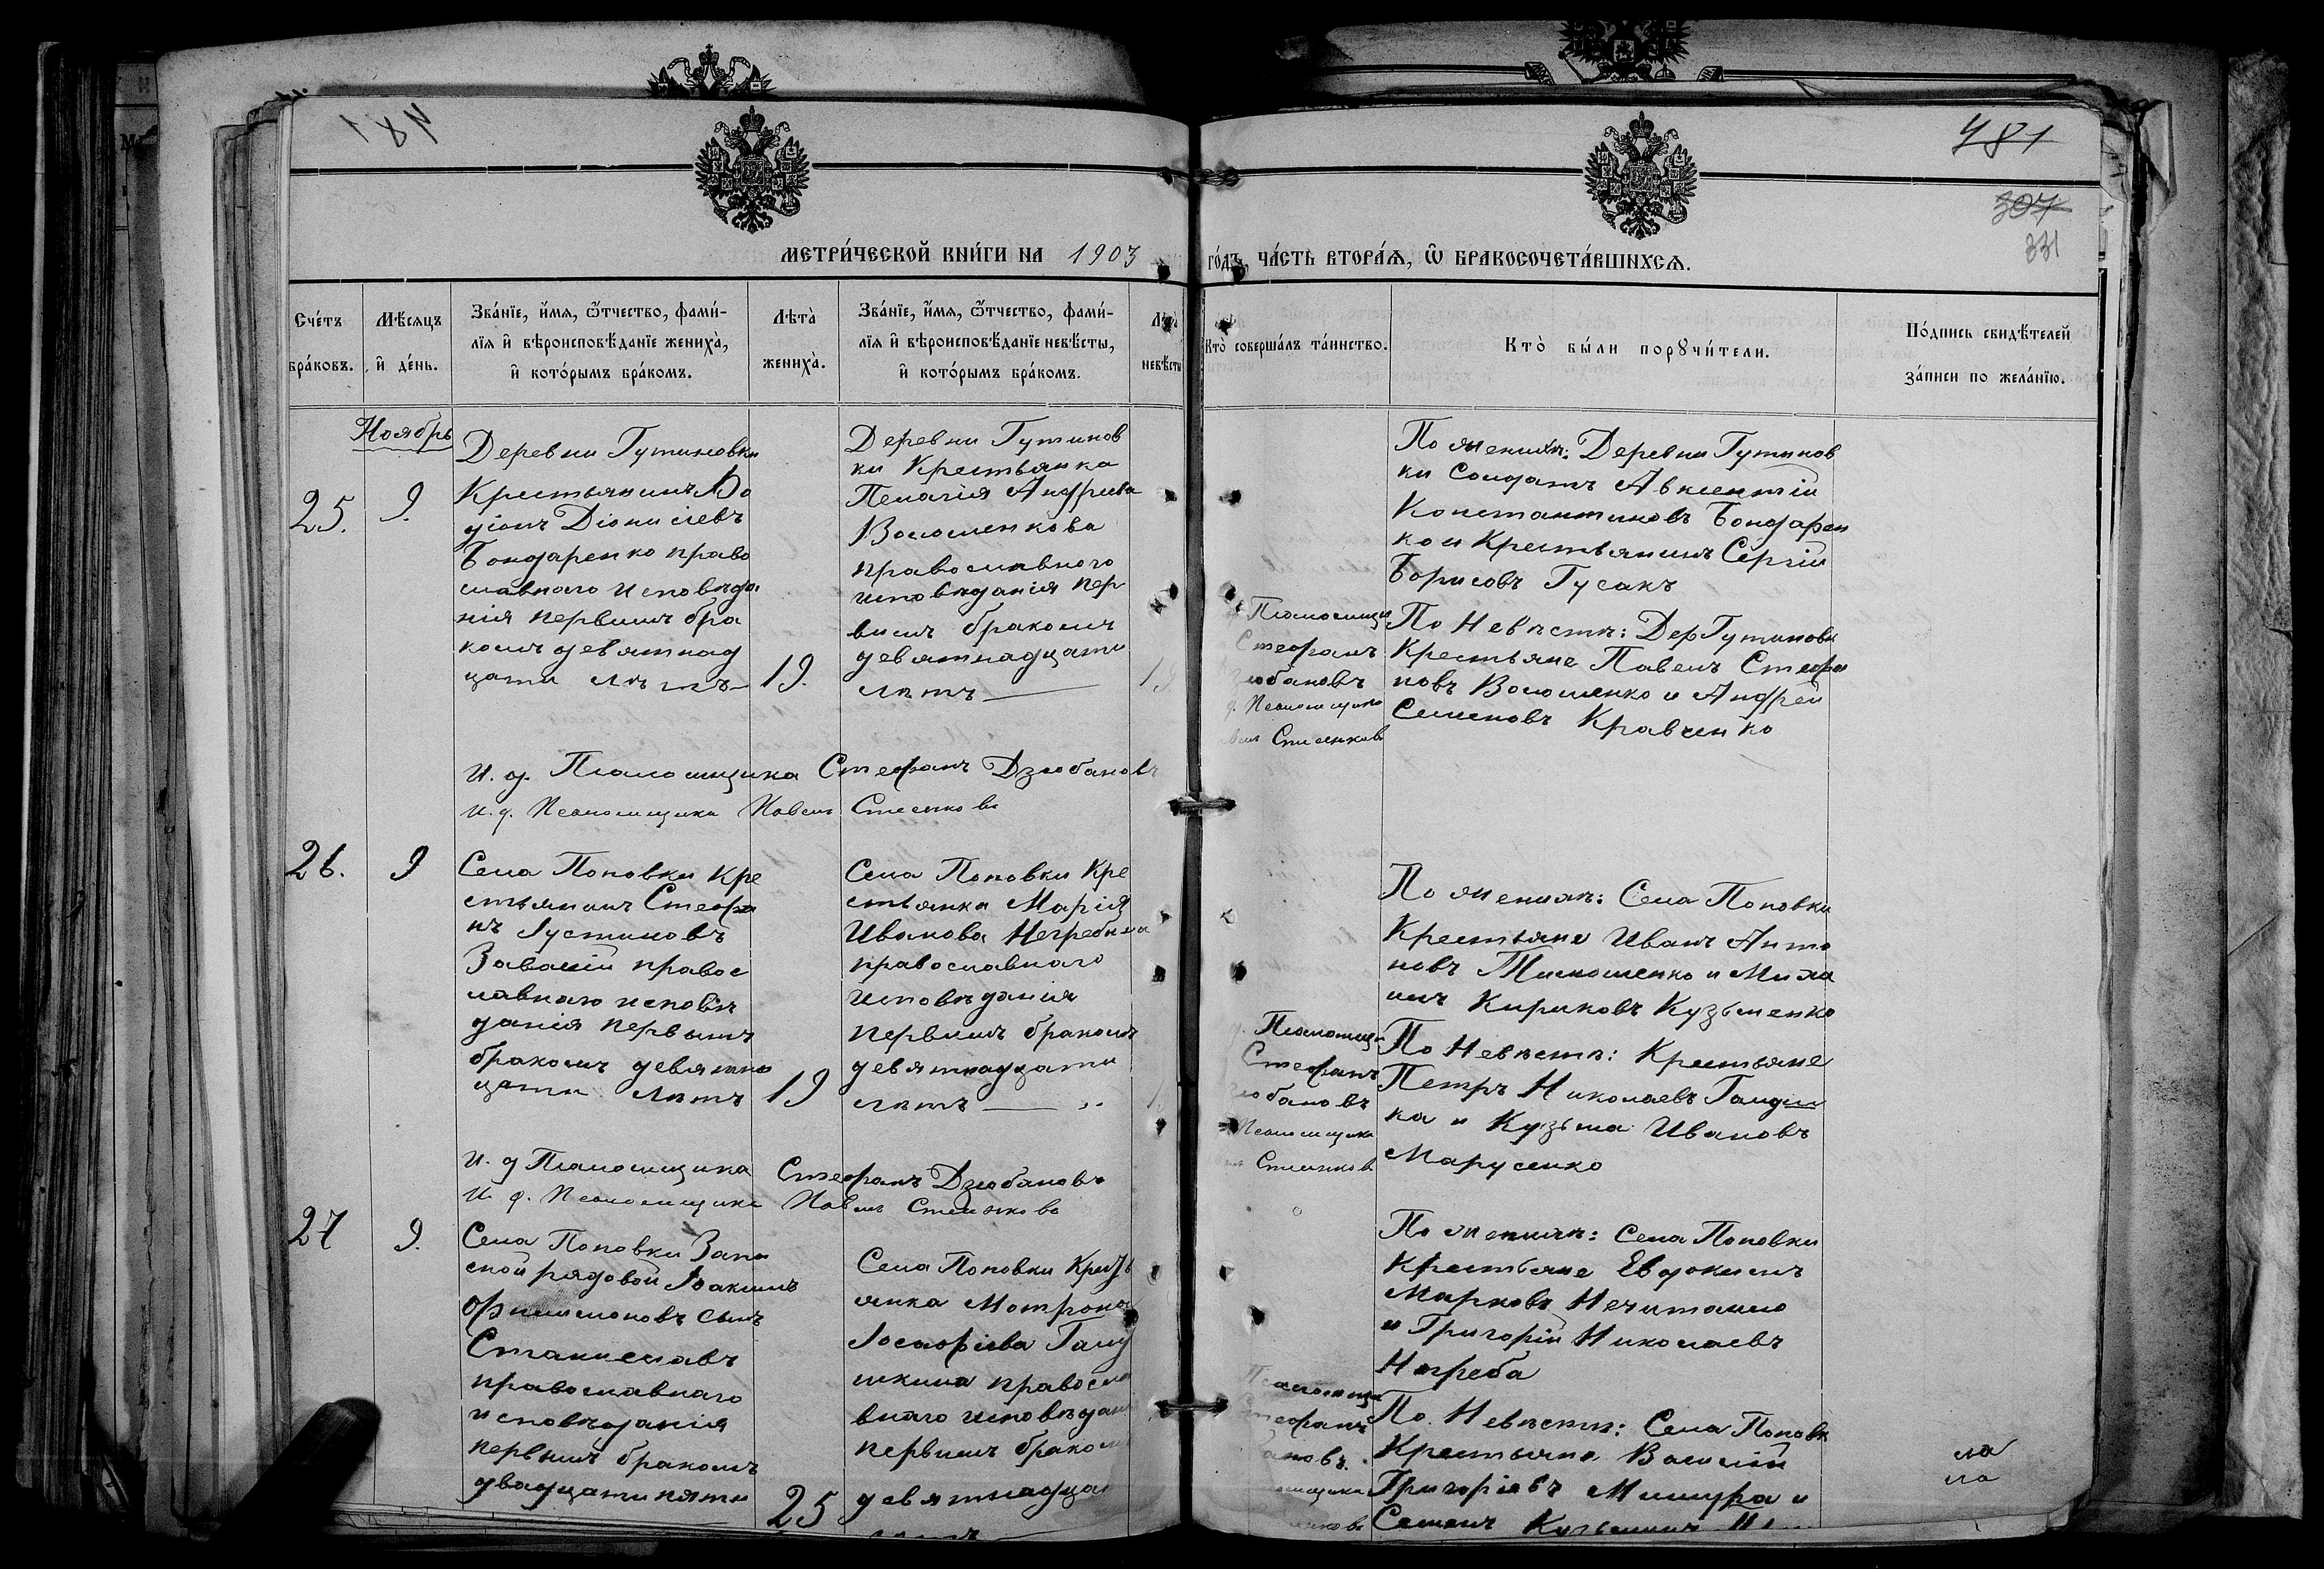 481
481
307
331
МЕТРИ́ЧЕСКОЙ КНИ́ГИ НА 1903 ГО́ДЪ, ЧА́СТЬ ВТОРА́Ѧ, Ѽ БРАКОСОЧЕТА́ВШИХСѦ.
Сче́тъ бра́ковъ.
Мѣ́сяцъ и҆ де́нь.
Зва́нїе, и҆́мя, ѻ҆́тчество, фами́-
лїя и҆ вѣроисповѣ́данїе жениха̀,
и҆ кото́рымъ бра́комъ.
Лѣта̀ жениха̀.
Зва́нїе, и҆́мя, ѻ҆́тчество, фами́-
лїя и҆ вѣроисповѣ́данїе невѣ́сты,
и҆ кото́рымъ бра́комъ.
невѣ́сты
Кто̀ соверша́лъ та́инство.
Кто̀ бы́ли порꙋчи́тели.
По́дпись свидѣ́телей
за́писи по жела́нїю.
Ноябрь
25.
9.
Деревни Гутиновки
Крестьянинъ Ро
діонъ Діонисіевъ
Бондаренко право
славнаго исповѣда
нія первымъ бра
комъ девятнад
цати лѣтъ
19.
Деревни Гутинов
ки Крестьянка
Пелагія Андреева
Волошенкова
православнаго
исповѣданія пер
вымъ бракомъ
девятнадцати
лѣтъ
Псаломщи
Стефанъ
зюбановъ
д. Псаломщика
Стиенковъ
По женихѣ: Деревни Гутинов
ки Солдатъ Авксентій
Константиновъ Бондарен
ко и Крестьянинъ Сергій
Борисовъ Гусакъ
По Невѣстѣ: Дер Гутиновк
Крестьяне Павелъ Стефа
новъ Волошенко и Андрей
Семеновъ Кравченко
И. д. Псаломщика Стефанъ Дзюбановъ
И. д. Псаломщика Павелъ
26.
9
Села Поповки Кре
стьянинъ Стефа
нъ Іустиновъ
Завалій правос
лавнаго исповѣ
данія первымъ
бракомъ девятна
цати лѣтъ
19
Села Поповки Кре
стьянка Марія
Иванова Негребина
православнаго
исповѣданія
первымъ бракомъ
девятнадцати
лѣтъ
Псаломщи
Стефанъ
зюбановъ
Псаломщика
По женихѣ: Села Поповки
Крестьяне Иванъ Анто
новъ Тимошенко и Миха
илъ Кириковъ Кузьменко
По Невѣстѣ: Крестьяне
Петръ Николаевъ
ка и Кузьма Ивановъ
Марусенко
И. д Псаломщика Стефанъ Дзюбановъ
И. д. Псаломщика Павелъ
27
9.
Села Поповки Запа
сной рядовой Іоакимъ
Филимоновъ сынъ
Станиславъ
православнаго
исповѣданія
первымъ бракомъ
двадцати пяти
25
Села Поповки Кресть
янка Мотрона
Іосифіева
православ
внаго исповѣдан
первымъ браком
девятнадца
лѣтъ
По женихѣ: Села Поповки
Крестьяне Евдокимъ
Марковъ Нечитайло
и Григорій Николаевъ
Негреба
По Невѣсти: Села Поповк
Крестьяне Василій
Григоріевъ Мишура и
Семенъ Кузьминъ